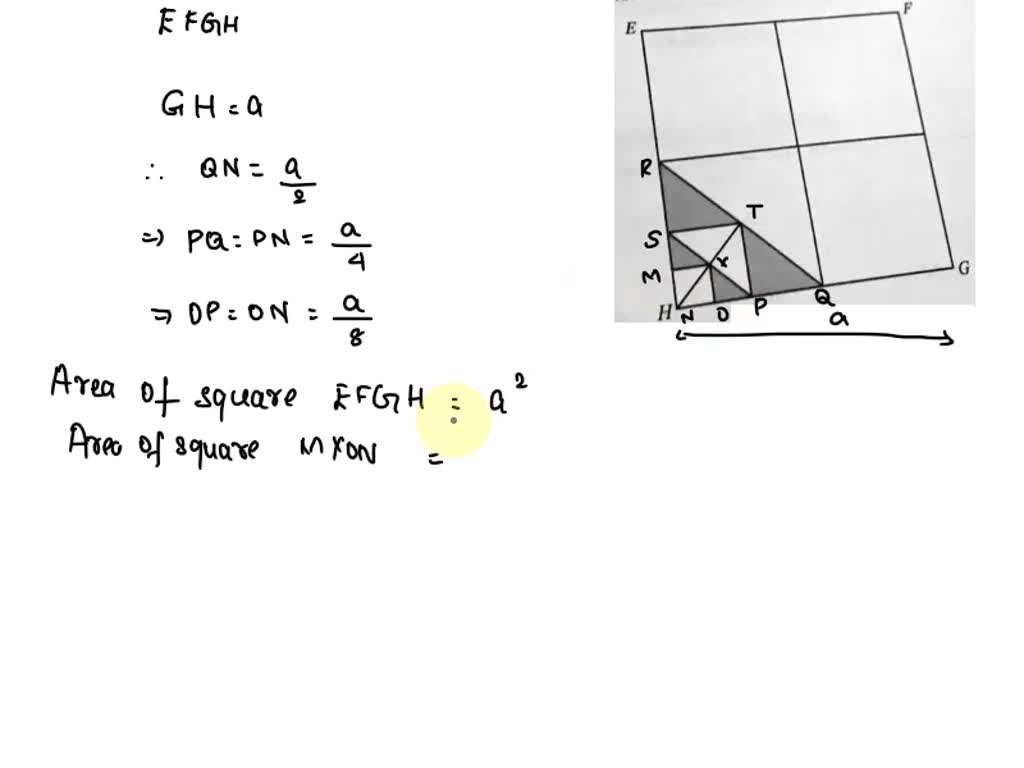 EFGH
GH = a
∴ QN = a/2
⇒ PQ = PN = a/4
⇒ OP = ON = a/8
Area of square EFGH = a²
Area of square MXON =
E
F
R
T
S
X
M
G
H N O P Q
a